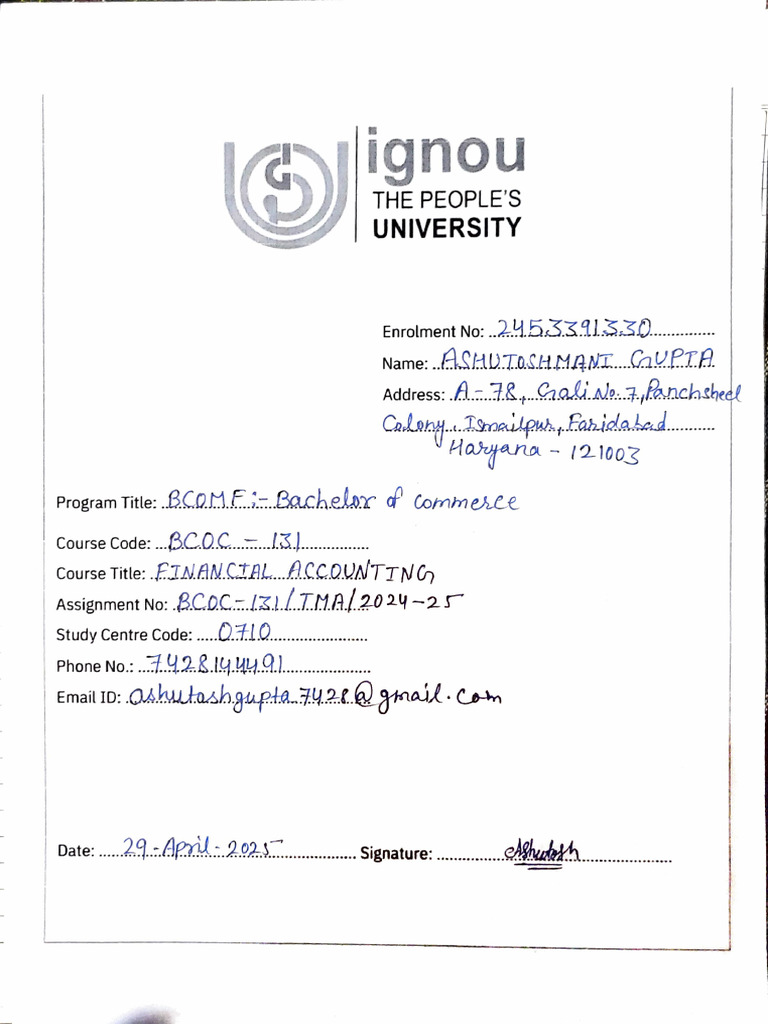 ignou
THE PEOPLE'S
UNIVERSITY
Enrolment No: 2453391330
Name: ASHUTOSHMANI GUPTA
Address: A-78, Gali No. 7, Panchsheel
Colony, Ismailpur, Faridabad
Haryana - 121003
Program Title: BCOMF:- Bachelor of Commerce
Course Code: BCOC - 131
Course Title: FINANCIAL ACCOUNTING
Assignment No: BCOC-131/TMA/2024-25
Study Centre Code: 0710
Phone No.: 7428144491
Email ID: ashutoshgupta7428@gmail.com
Date: 29-April-2025 Signature: Ashutosh